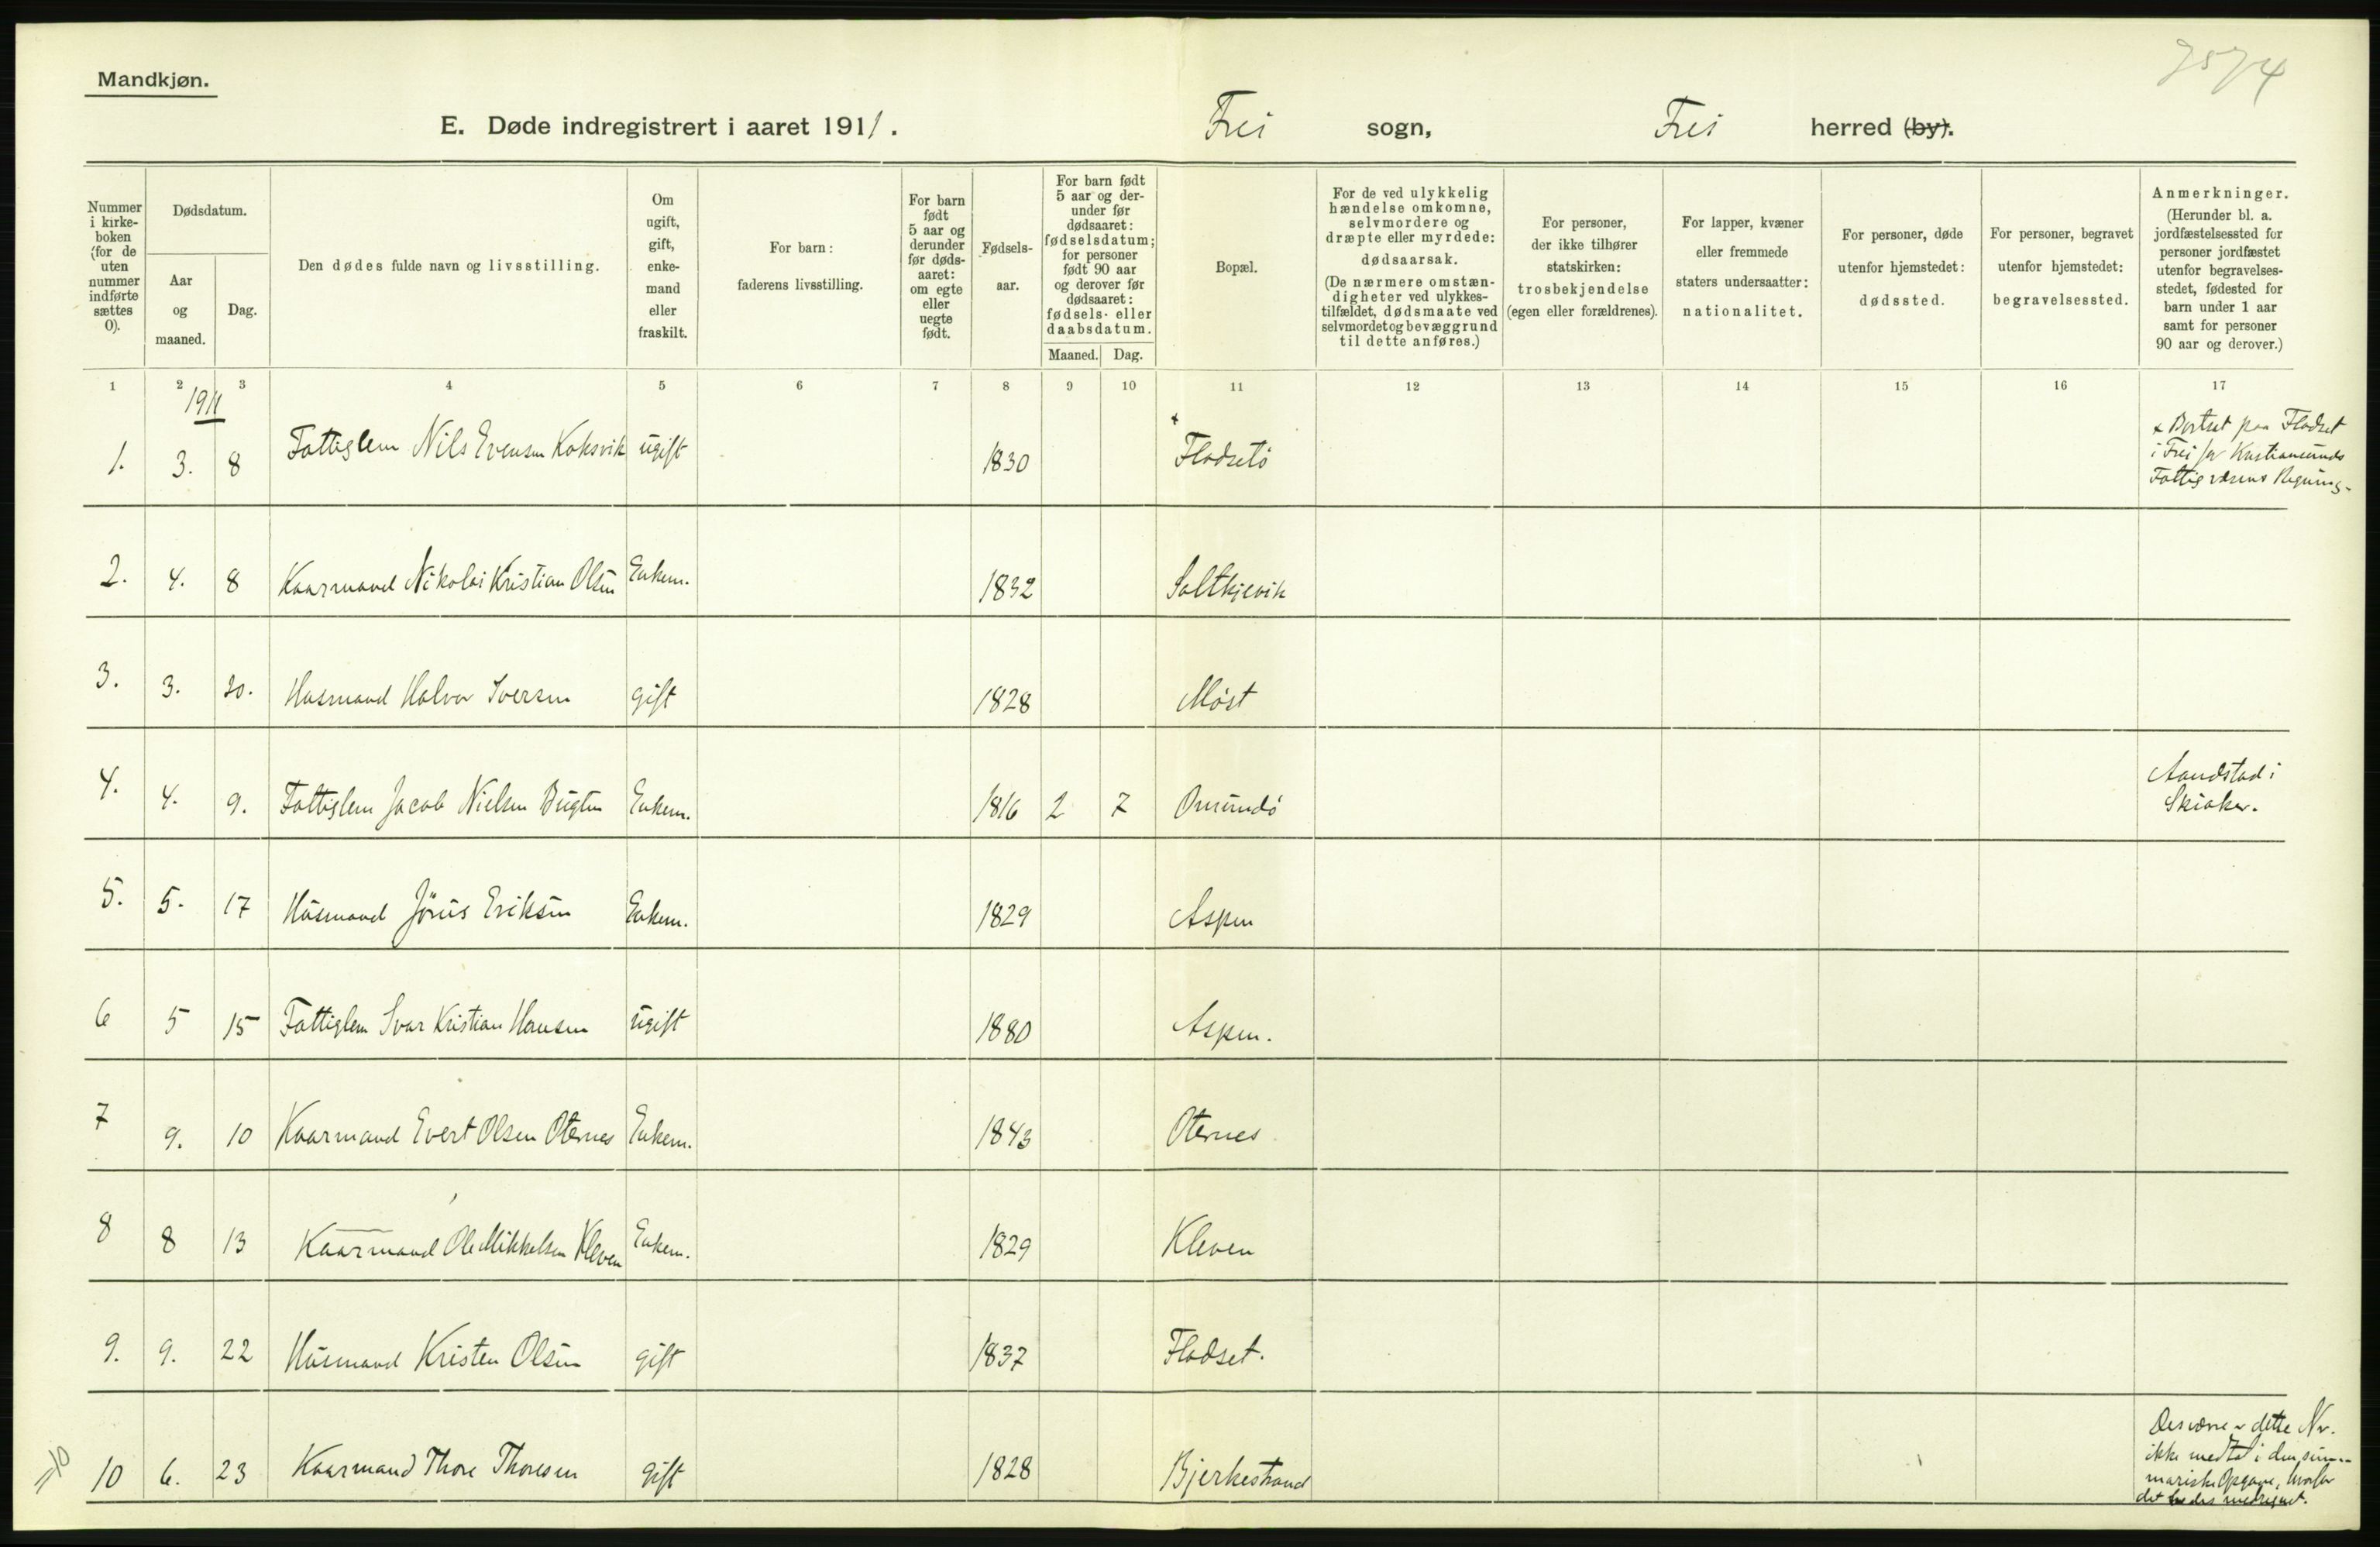 7574
Mandkjøn.
E. Døde indregistrert i aaret 1911. Frei sogn, Frei herred (by).
Nummer i kirke-boken (for de uten nummer indførte sættes 0).
Dødsdatum.
Aar og maaned.
Dag.
Den dødes fulde navn og livsstilling.
Om ugift, gift, enke-mand eller fraskilt.
For barn: faderens livsstilling.
For barn født 5 aar og derunder før døds-aaret: om egte eller uegte født.
Fødsels-aar.
For barn født 5 aar og der-under før dødsaaret: fødselsdatum; for personer født 90 aar og derover før dødsaaret: fødsels- eller daabsdatum.
Maaned. Dag.
Bopæl.
For de ved ulykkelig hændelse omkomne, selvmordere og dræpte eller myrdede: dødsaarsak. (De nærmere omstæn-digheter ved ulykkes-tilfældet, dødsmaate ved selvmordet og bevæggrund til dette anføres.)
For personer, der ikke tilhører statskirken: trosbekjendelse (egen eller forældrenes).
For lapper, kvæner eller fremmede staters undersaatter: nationalitet.
For personer, døde utenfor hjemstedet: dødssted.
For personer, begravet utenfor hjemstedet: begravelsessted.
Anmerkninger. (Herunder bl. a. jordfæstelsessted for personer jordfæstet utenfor begravelses-stedet, fødested for barn under 1 aar samt for personer 90 aar og derover.)
1 2 3 4 5 6 7 8 9 10 11 12 13 14 15 16 17
1911
1. 3. 8 Fattiglem Nils Evensen Koksvik ugift 1830 x Flodsetö x Bortsat paa Flodset
i Frei for Kristiansunds
Fattigvæsens Regning-
2. 4. 8 Kaarmand Nikolai Kristian Olsen Enkem. 1832 Saltkjelvik
3. 3. 20. Husmand Halvor Iversen gift 1828 Möst
4. 4. 9. Fattiglem Jacob Nielsen Bugten Enkem. 1816 2 7 Omundö Aandstad i
Skiaker.
5. 5. 17 Husmand Jörus Eriksen Enkem. 1829 Aspen
6 5 15 Fattiglem Ivar Kristian Hansen ugift 1880 Aspen.
7 9. 10 Kaarmand Evert Olsen Oternes Enkem. 1843 Oternes
8 8 13 Kaarmand Ole Mikkelsen Kleven Enkem. 1829 Kleven
9. 9. 22 Husmand Kristen Olsen gift 1837 Flodset.
10 10 6. 23 Kaarmand Thore Thoresen gift 1828 Bjerkestrand Desværre er dette Nr.
ikke medtat i den sum-
mariske Opgave, hvorfor
det medregnet.